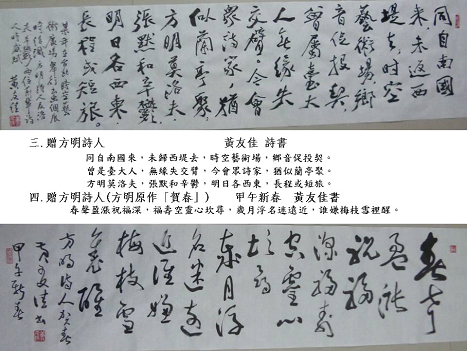 同自南國
來,未返西
堤去,時空
藝術場,鄉
音促投契,
曾屬臺大
人無緣失
交臂,今會
眾詩家,猶
似蘭亭聚.
方明莫洛夫
張默和辛鬱
明日各西東
長程或短旅.
三.贈方明詩人 黃友佳 詩書
同自南國來,未歸西堤去,時空藝術場,鄉音促投契。
曾是臺大人,無緣失交臂,今會眾詩家,猶似蘭亭聚。
方明莫洛夫,張默和辛鬱,明日各西東,長程或短旅。
四.贈方明詩人(方明原作「賀春」) 甲午新春 黃友佳書
春聲盈漲祝福深,福壽空靈心坎尋,歲月浮名迷遠近,誰嫌梅枝雪裡醒。
春聲
盈漲
祝福
深福壽
空靈心
坎尋
歲月浮
名迷遠
近誰嫌
梅枝雪
裡醒
方明詩人賀春
黃友佳書
甲午新春